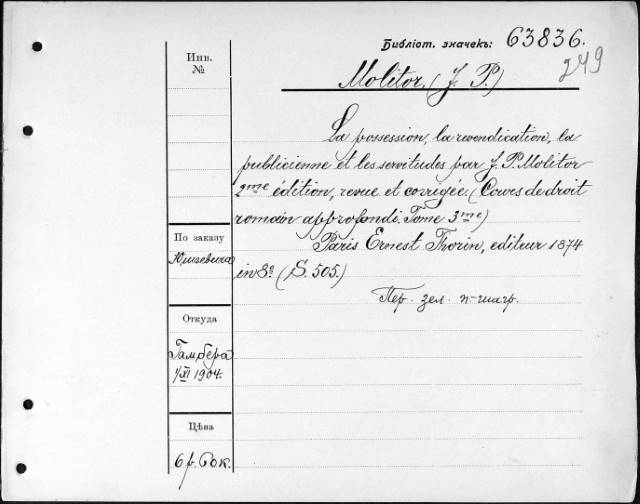 Библіот. значекъ: 63836.
249
Molitor. (J. P.)
La possession, la revendication, la
publicienne et les servitudes par J. P. Molitor
2me édition, revue et corrigée. (Cours de droit
romain approfondi. Tome 3me)
Paris Ernest Thorin, editeur 1874
in 8º. (S. 505.)
Пер. зел. п-шагр.
Инв.
№
По заказу
Юшкевича
Откуда
Гамбера
1/XI 1904.
Цѣна
6 р. 60 к.